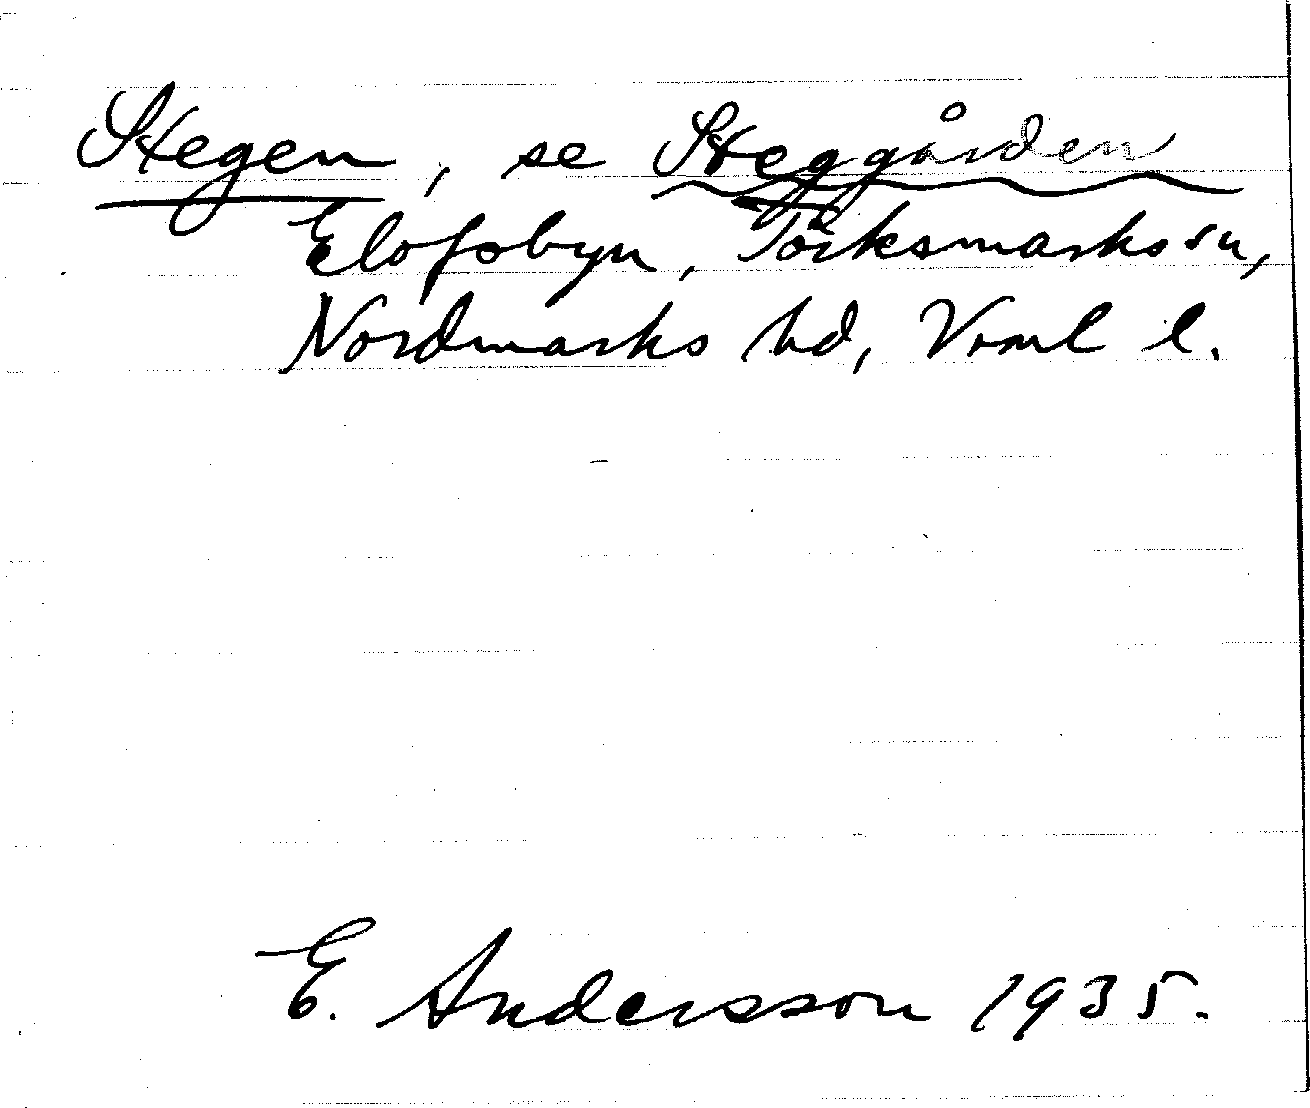 Stegen, se Steggården
Elofsbyn, Törksmarks sn,
Nordmarks hd, Vrml l.
E. Andersson 1935.